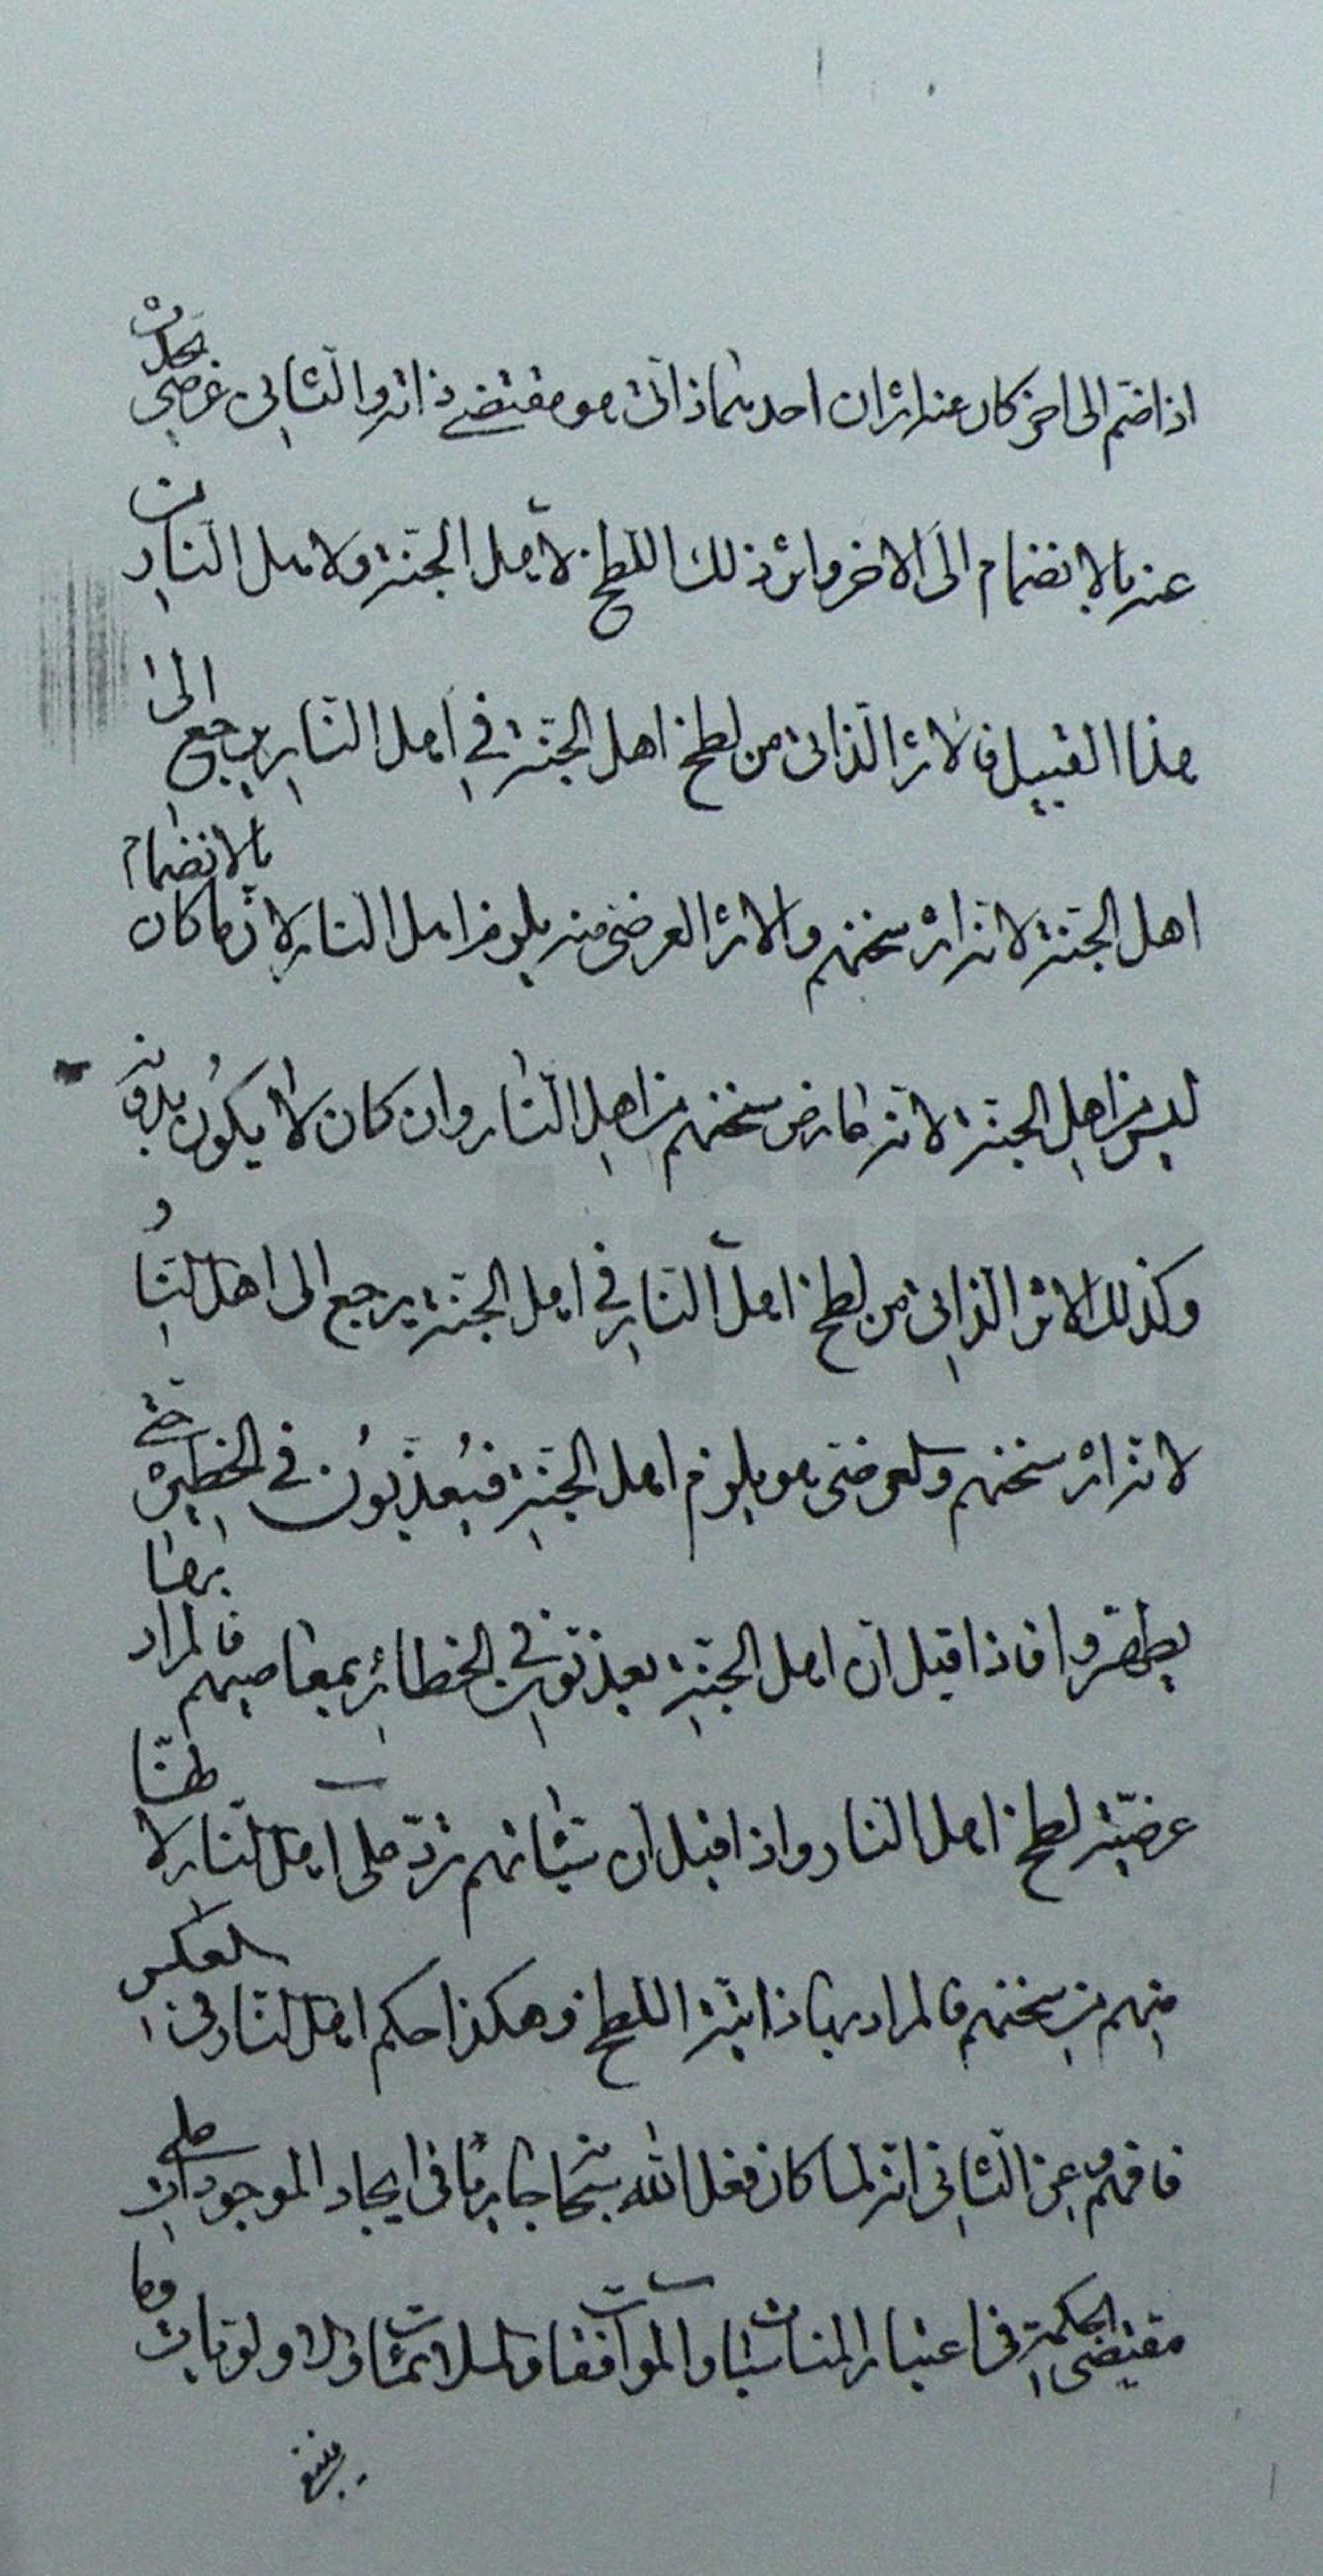 اذا ضم الى اخر كان عنه اثران احدهما ذاتى هو مقتضى ذاته والثانى عرضى يحدث
عنه بالانضمام الى الاخر واثر ذلك اللطخ لاهل الجنة ولاهل النار من
هذا القبيل فالاثر الذاتى من لطخ اهل الجنة فى اهل النار يرجع الى
اهل الجنة لانه اثر سنخهم والاثر العرضى منه يلزم اهل النار لانه ما كان بالانضمام
ليس من اهل الجنة لانه عارض سنخهم من اهل النار وان كان لا يكون بدونه
وكذلك الاثر الذاتى من لطخ اهل النار فى اهل الجنة يرجع الى اهل النار
لانه اثر سنخهم والعرضى هو يلزم اهل الجنة فيعذبون فى الحظيرة حتى
يطهروا فاذا قيل ان اهل الجنة يعذبون فى الحظائر بمعاصيهم فالمراد بها
عرضية لطخ اهل النار واذا قيل ان سيئاتهم ترد على اهل النار لانها
منهم من سنخهم فالمراد بها ذاتية اللطخ وهكذا حكم اهل النار فى العكس
فافهم وعن الثانى انه لما كان فعل الله سبحانه جاريا فى ايجاد الموجودات على
مقتضى الحكمة فى اعتبار المناسبات والموافقات والملائمات والاولويات وما